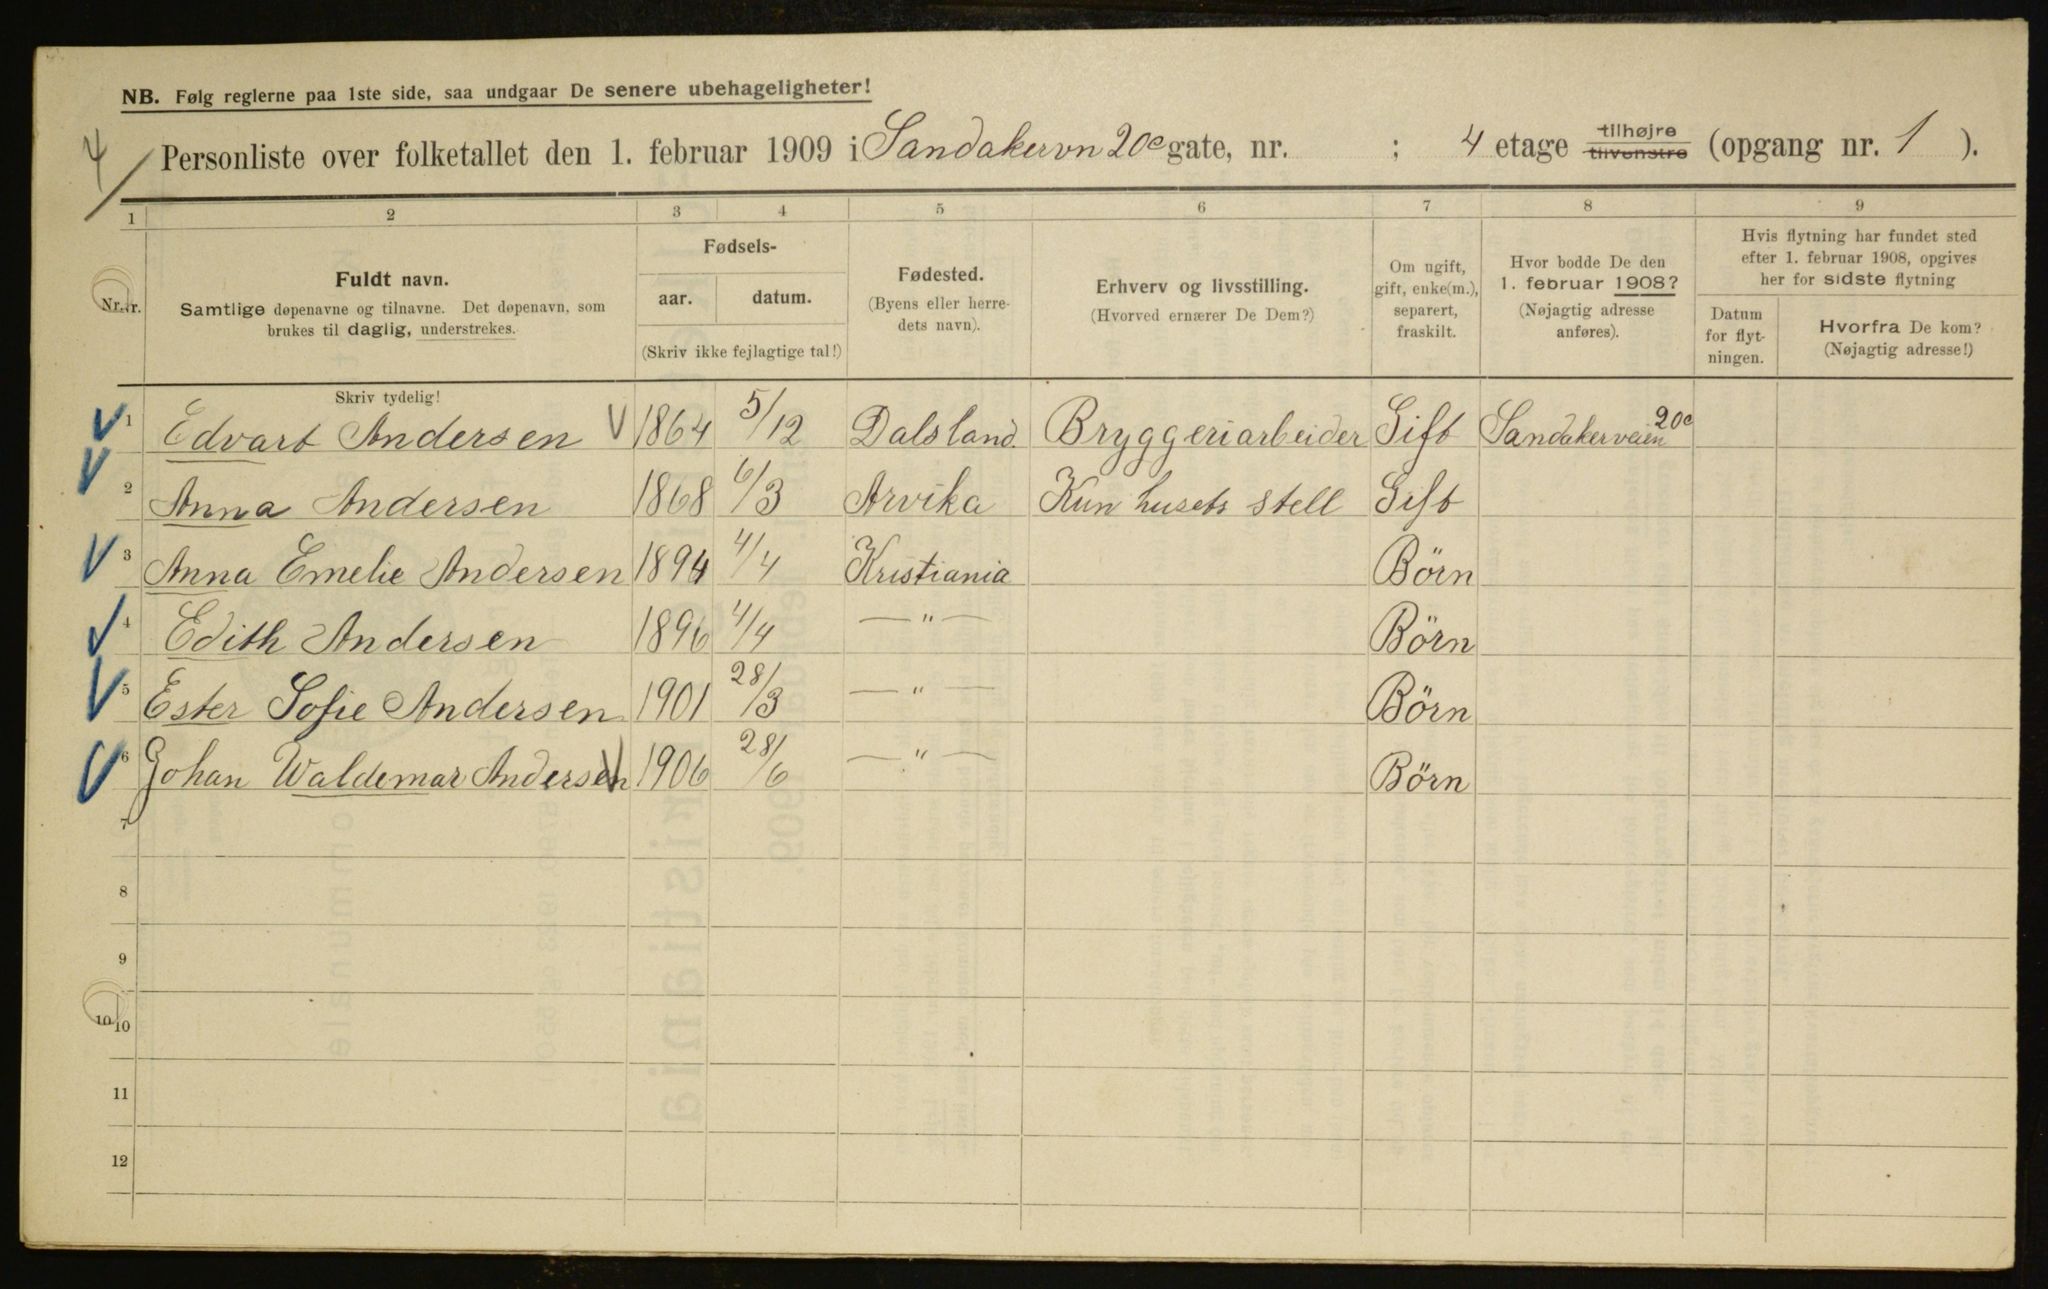 NB. Følg reglerne paa 1ste side, saa undgaar De senere ubehageligheter!
4
Personliste over folketallet den 1. februar 1909 i Sandakervn 20c gate, nr. ; 4 etage tilhøjre tilvenstre (opgang nr. 1 ).
1 2 3 4 5 6 7 8 9
Nr. Nr.
Fuldt navn.
Samtlige døpenavne og tilnavne. Det døpenavn, som
brukes til daglig, understrekes.
Fødsels-
aar. datum.
(Skriv ikke fejlagtige tal!)
Fødested.
(Byens eller herre-
dets navn).
Erhverv og livsstilling.
(Hvorved ernærer De Dem?)
Om ugift,
gift, enke(m.),
separert,
fraskilt.
Hvor bodde De den
1. februar 1908?
(Nøjagtig adresse
anføres).
Hvis flytning har fundet sted
efter 1. februar 1908, opgives
her for sidste flytning
Datum
for flyt-
ningen.
Hvorfra De kom?
(Nøjagtig adresse!)
Skriv tydelig!
1 Edvart Andersen 1864 5/12 Dalsland. Bryggeriarbeider Gift Sandakerveien 20c
2 Anna Andersen 1868 6/3 Arvika Kun husets stell Gift
3 Anna Emelie Andersen 1894 4/4 Kristiania Börn
4 Edith Andersen 1896 4/4 — " — Börn
5 Ester Sofie Andersen 1901 28/3 — " — Börn
6 Johan Waldemar Andersen 1906 28/6 — " — Börn
7
8
9
10 10
11
12